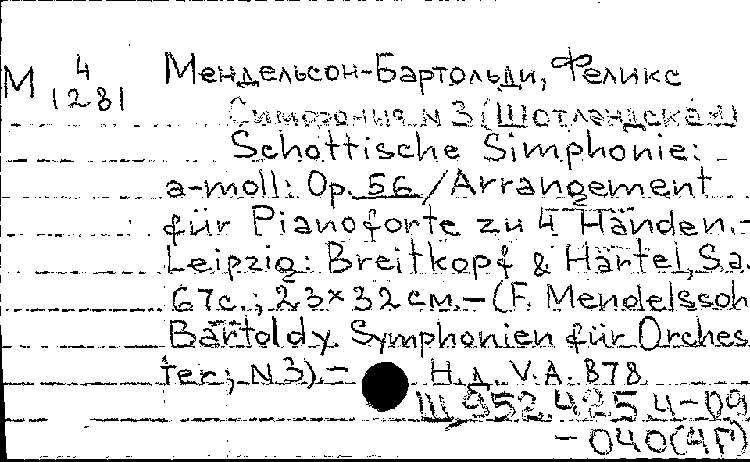 М 4
1281
Мендельсон-Бартольди, Феликс
Симфония N 3 (Шотландская)
Schottische Simphonie:
a-moll: Op. 56 / Arrangement
für Pianoforte zu 4 Händen.-
Leipzig: Breitkopf & Härtel, S.a.
67с.; 23×32 см.-(F. Mendelssoh
Bartoldy. Symphonien für Orches
ter; N 3).-
Н.д. V.A. 878
Ш 952.425.4-09
-040(4Г)